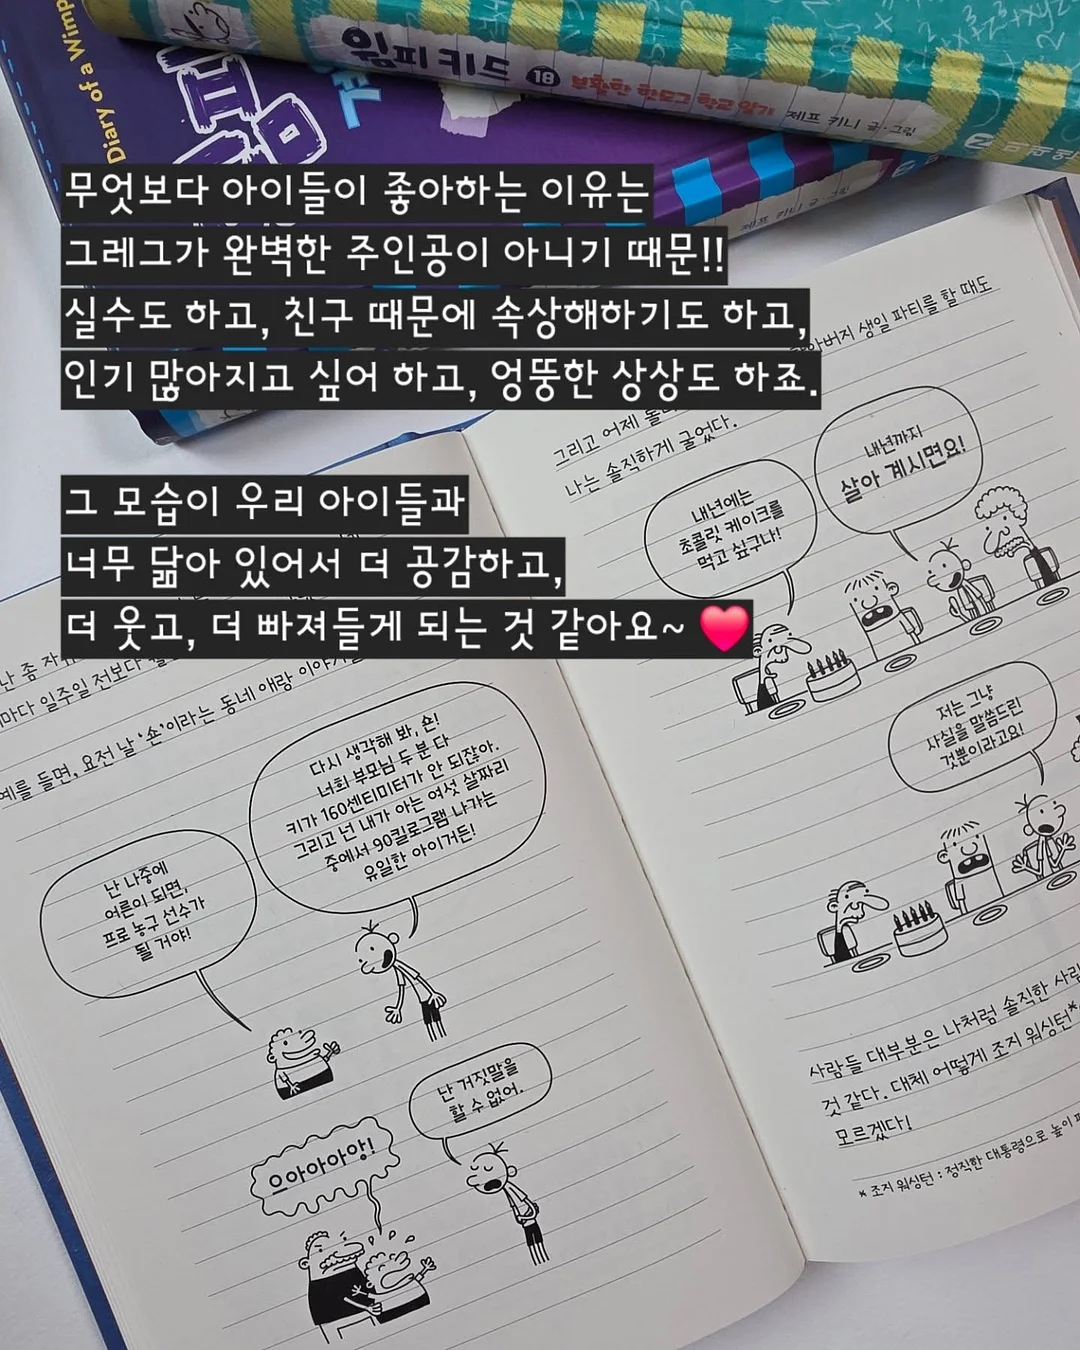 Diary of a Wimp
윔피 키드 18 부활한 한모그 학교 일기 제프 키니 글·그림
제프 키니 글·그림
무엇보다 아이들이 좋아하는 이유는
그레그가 완벽한 주인공이 아니기 때문!!
실수도 하고, 친구 때문에 속상해하기도 하고,
인기 많아지고 싶어 하고, 엉뚱한 상상도 하죠.
그 모습이 우리 아이들과
너무 닮아 있어서 더 공감하고,
더 웃고, 더 빠져들게 되는 것 같아요~ ❤️
난 좀
마다 일주일 전보다
예를 들면, 요전 날 '숀'이라는 동네 애랑
난 나중에
어른이 되면,
프로 농구 선수가
될 거야!
다시 생각해 봐, 숀!
너희 부모님 두 분 다
키가 160센티미터가 안 되잖아.
그리고 넌 내가 아는 여섯 살짜리
중에서 90킬로그램 나가는
유일한 아이거든!
난 거짓말을
할 수 없어.
으아아아앙!
생일 파티를 할 때도
그리고 어제
나는 솔직하게 굴었다.
내년에는
초콜릿 케이크를
먹고 싶구나!
내년까지
살아 계시면요!
저는 그냥
사실을 말씀드린
것뿐이라고요!
사람들 대부분은 나처럼 솔직한
것 같다. 대체 어떻게 조지 워싱턴*
모르겠다!
* 조지 워싱턴 : 정직한 대통령으로 높이